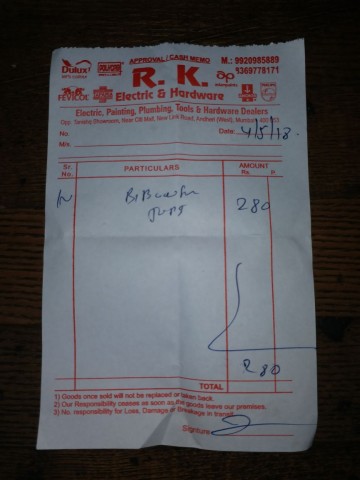 APPROVAL / CASH MEMO
M.: 9920985889
9369778171
Dulux
POLYCAB
R. K.
ap
FEVICOL
Electric & Hardware
PHILIPS
Electric, Painting, Plumbing, Tools & Hardware Dealers
Opp. Tanishq Showroom, Near Citi Mall, New Link Road, Andheri (West), Mumbai
No.
Date 4/5/18.
M/s.
Sr. No. PARTICULARS AMOUNT Rs.
280
280
TOTAL
1) Goods once sold will not be replaced or taken back.
2) Our Responsibility ceases as soon as the goods leave our premises.
3) No. responsibility for Loss, Damage or Breakage in transit.
Signture